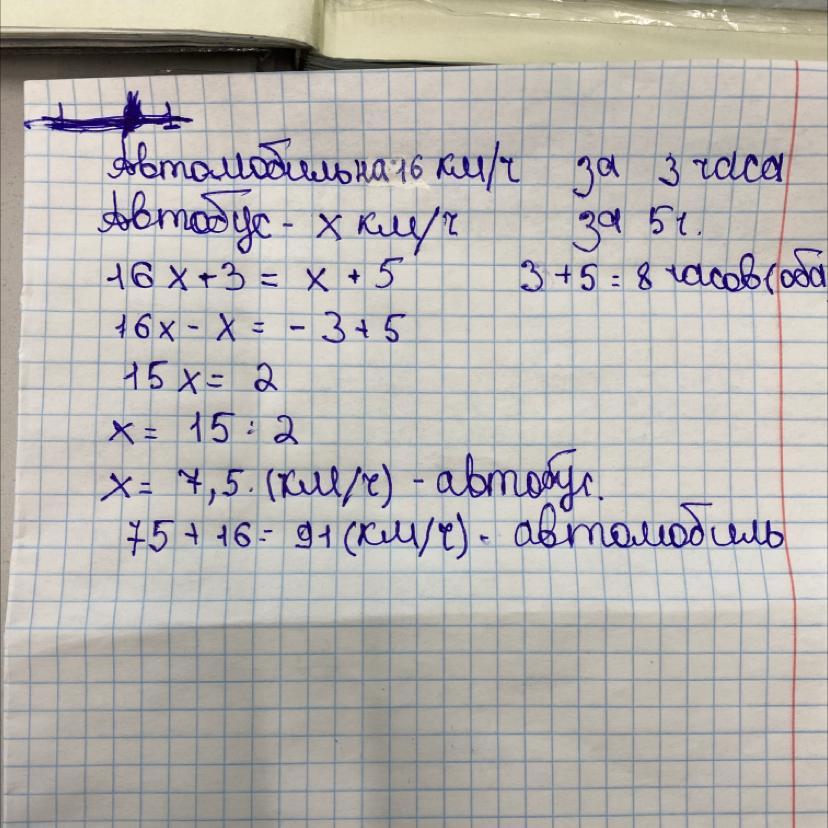 Автомобиль на 16 км/ч за 3 часа
Автобус - х км/ч за 5ч.
16х+3 = х + 5 3+5=8 часов (оба
16х - х = - 3+5
15х = 2
х = 15 : 2
х = 7,5. (км/ч) - автобус.
75 + 16 = 91 (км/ч) - автомобиль